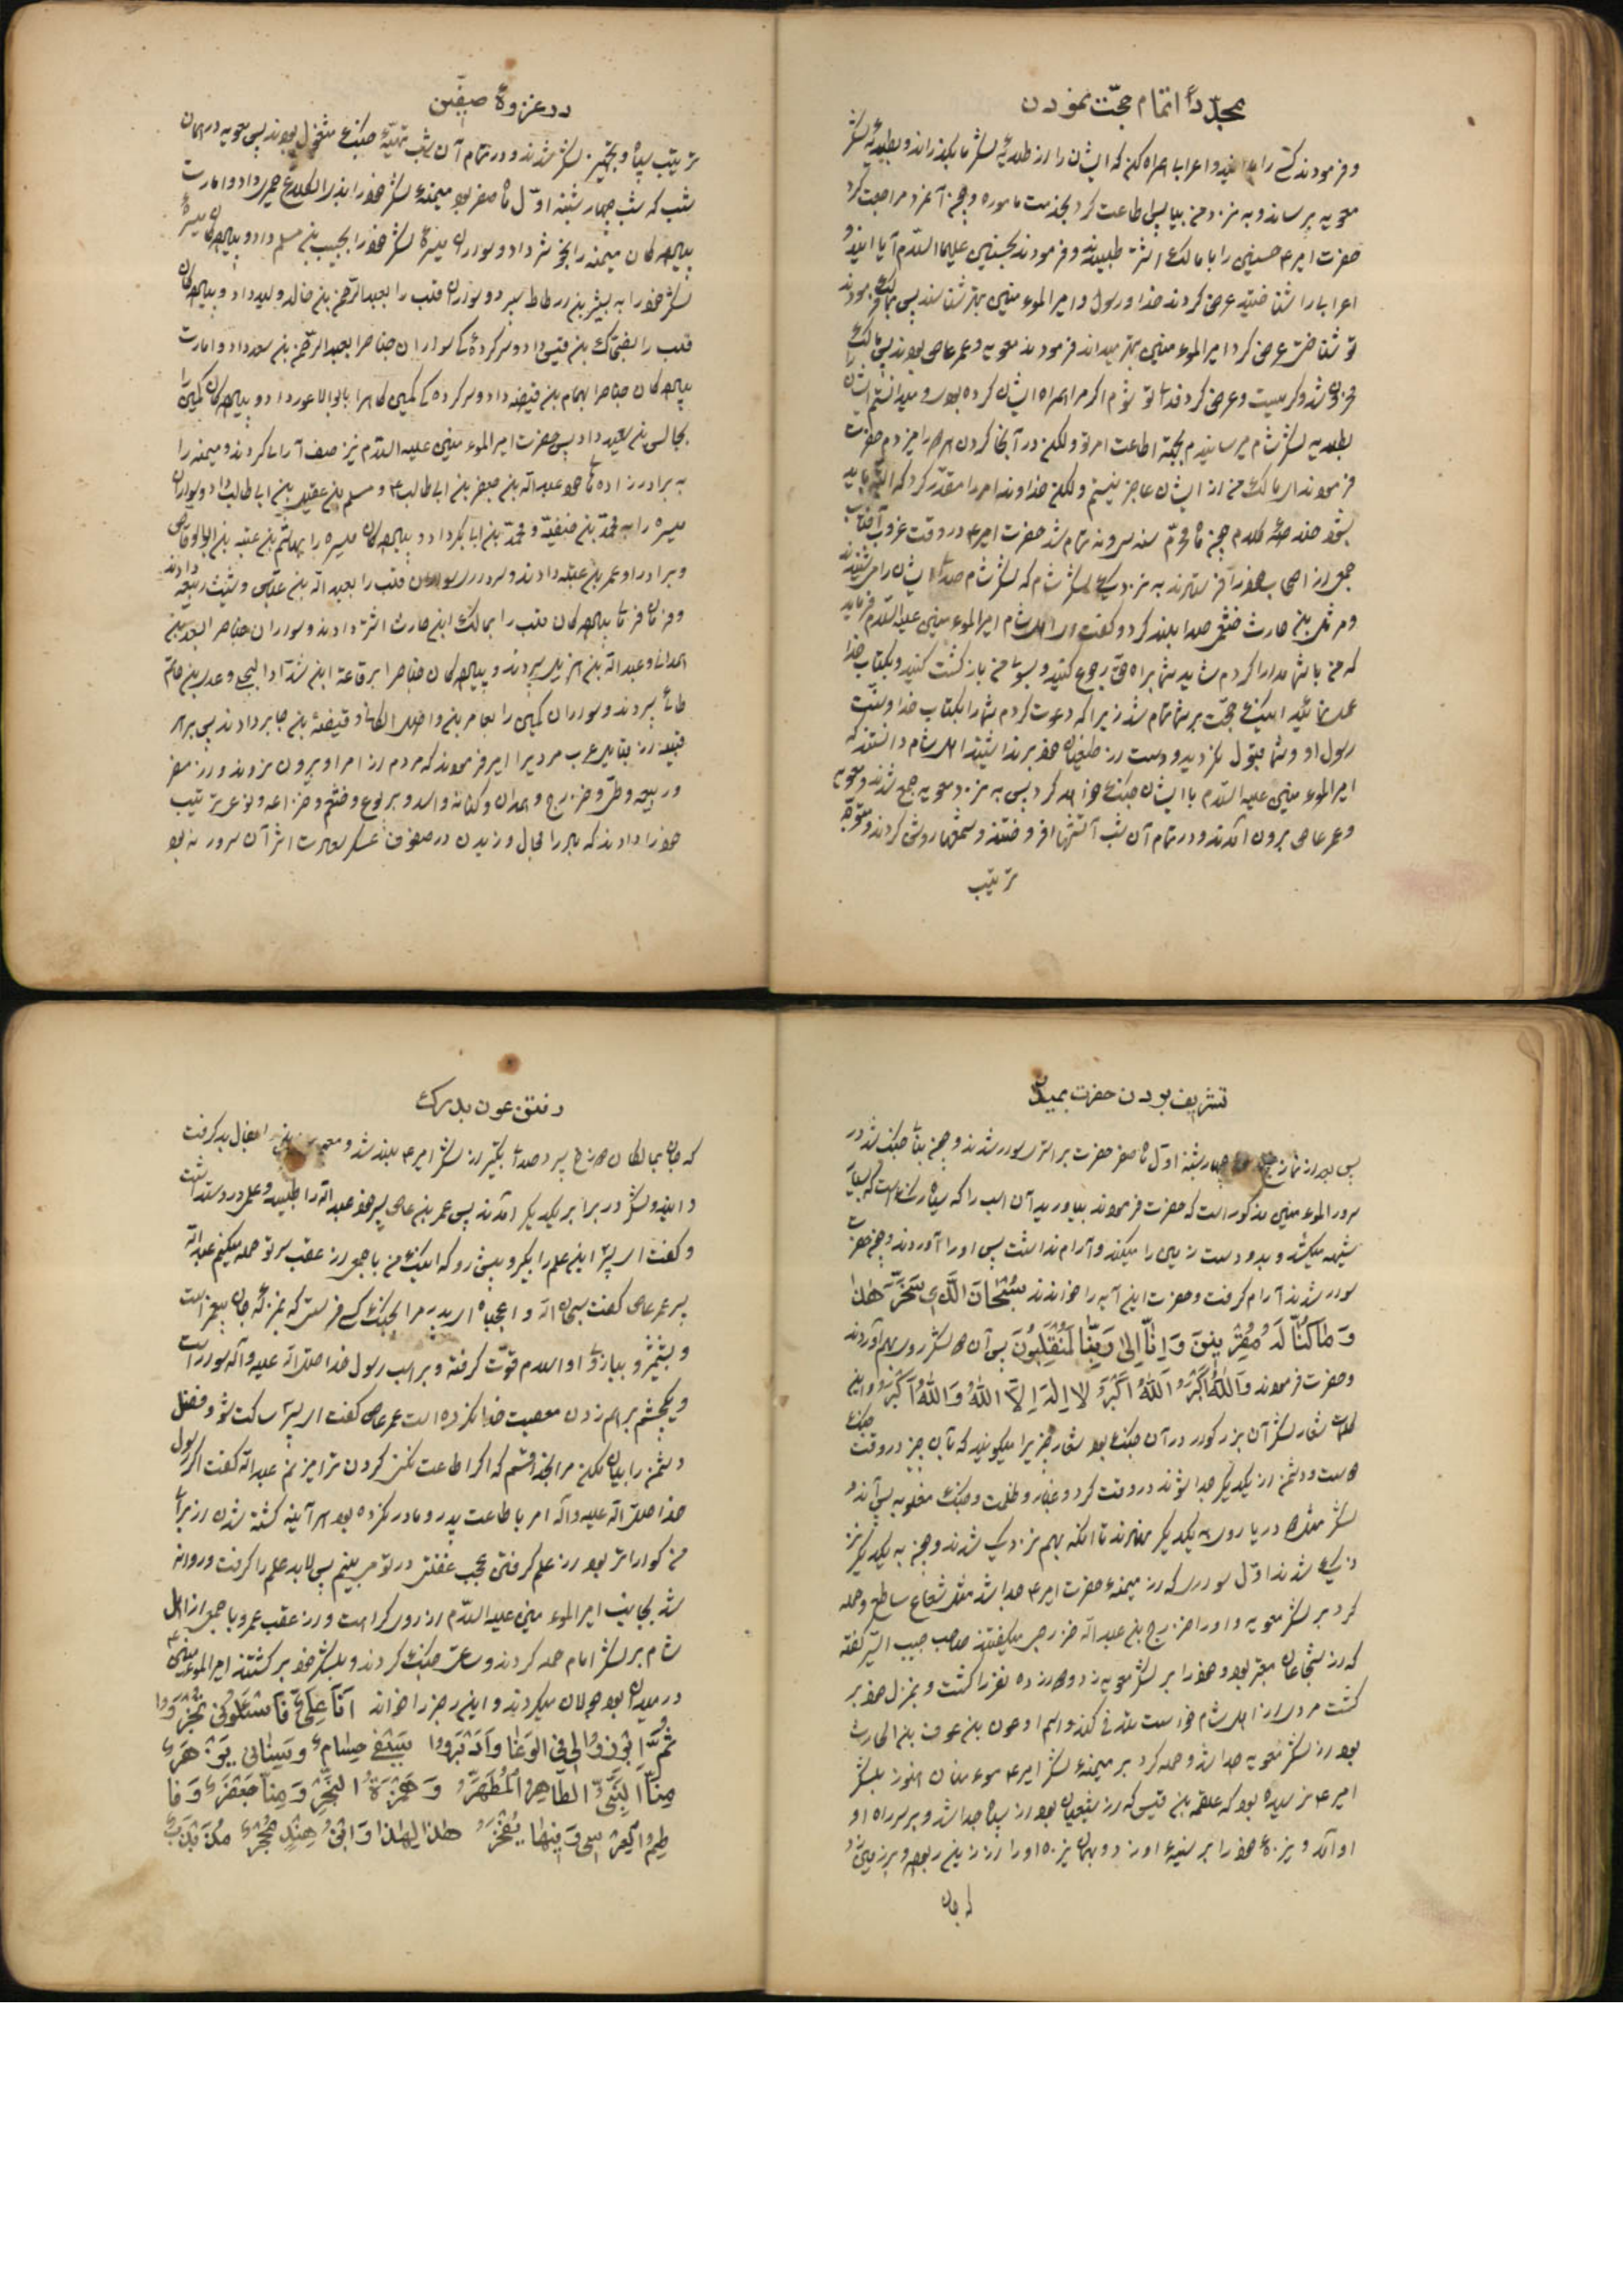 مجلّداً اتمام حجّت نمودن
و فرمودند کسی را و اعرابی همراه کن که ایشان را از طلایهٔ لشکر ما بگذراند و بطلیعهٔ لشکر
معویه برساند و به نزد من بیا پس اطاعت کرد بخدمت ماموره و چون آمد مراجعت کرد
حضرت امیر ع حسنین را با مالک اشتر طلبیدند و فرمودند بحسنین علیهما السّلام آیا این دو
اعرابی را شناختید عرض کردند خدا و رسول و امیر المؤمنین بهتر شناسند پس بمالک فرمودند
تو شناختی عرض کرد امیر المؤمنین بهتر میداند فرمودند معویه و عمر عاص بودند پس مالک
شد و گریست و عرض کرد فدای تو شوم اگر مرا همراه ایشان کرده بودی و میدانستم ایشان را
بطلایه لشکر شام میرسانیدم بجهة اطاعت امر تو ولکن در آنجا گردن هر دو را میزدم حضرت
فرمودند ای مالک من از ایشان عاجز نیستم ولکن خداوند امر را مقدّر کرده که البتّه باید
بشود خلاصهٔ کلام چون ماه محرّم سنه سی و نه تمام شد حضرت امیر ع در وقت غروب آفتاب
جمعی از اصحاب خود را فرستادند به نزدیک لشکر شام که لشکر شام صدای ایشان را می شنیدند
و مرثد بن حارث خثعمی صدا بلند کرد و گفت ای اهل شام امیر المؤمنین علیه السّلام میفرماید
که من با شما مدارا کردم شاید شما براه حقّ رجوع کنید و بسوی من بازگشت کنید و بکتاب خدا
عمل نمائید اینک حجّت بر شما تمام شد زیرا که دعوت کردم شما را بکتاب خدا و سنّت
رسول او و شما قبول نکردید و دست از طغیان خود برنداشتید اهل شام دانستند که
امیر المؤمنین علیه السّلام با ایشان جنگ خواهد کرد پس به نزد معویه جمع شدند و معویه
و عمر عاص برون آمدند و در تمام آن شب آتشها افروختند و شمعها روشن کردند و متوجّه
ترتیب
در غزوهٔ صفّین
ترتیب سپاه و تجهیز لشکر شدند و در تمام آن شب تهیّهٔ جنگ مشغول بودند پس معویه در همان
شب که شب چهارشنبه اوّل ماه صفر بود میمنهٔ لشکر خود را بذی الکلاع حمیری داد و امارت
پیادهکان میمنه را بحوشب داد و سواران میسرهٔ لشکر خود را بحبیب بن مسلم داد و پیادهکان میسرهٔ
لشکر خود را به بشیر بن ارطاط سپرد و سواران قلب را بعبد الرّحمن بن خالد ولید داد و پیادهکان
قلب را بضحّاک بن قیس داد و سرکردهٔ سواران جناح را بعبد الرّحمن بن سعد داد و امارت
پیادهکان جناح را بهمام بن قبیضه داد و سرکردهکی کمین کاه را بابو الاعور داد و پیادهکان کمین را
بحابس بن سعید داد پس حضرت امیر المؤمنین علیه السّلام نیز صف آرائی کردند و میمنه را
به برادرزادهای خود عبد الله بن جعفر بن ابی طالب ع و مسلم بن عقیل بن ابی طالب داد و سواران
میسره را به محمّد بن حنفیّه و محمّد بن ابا بکر داد و پیادهکان میسره را بهاشم بن عتبه بن ابو الوقّاص
و برادر او عمر بن عتبه دادند و سرداری سواران قلب را بعبد الله بن عبّاس و شیث ربیعی دادند
و فرمان فرمائی پیادهکان قلب را بمالک ابن حارث اشتر دادند و سواران جناح را بسعد بن
همدانی و عبد الله بن بدیل سپردند و پیادهکان جناح را برفاعة ابن شدّاد البجلی و عدی بن حاتم
طائی سپردند و سواران کمین را بعامر بن واصل الکنانی و قبیصهٔ بن جابر دادند پس بهر
قبیله از قبایل عرب مردیرا امیر فرمودند که مردم از امر او بیرون نروند و از مضر
و ربیعه و طی و خزرج و همدان و کنانه و اسد و یربوع و خثعم و خزاعه و نوعی ترتیب
خود را دادند که باد را مجال وزیدن در صفوف عسکر نصرت اثر آن سرور نه بود
تشریف بردن حضرت بمیدان
پس بعد از نماز صبح چهارشنبه اوّل ماه صفر حضرت بر اشتر سوار شدند و چون بنای جنگ شد در
سرور المؤمنین مذکور است که حضرت فرمودند بیاورید آن اسب را که سیاه رنگ است که بسیار
شیهه میکشد و بدو دست زمین را میکند و آرام نداشت پس او را آوردند و چون حضرت
سوار شدند آرام گرفت و حضرت این آیه را خواندند سُبْحانَ الَّذی سَخَّرَ لَنا هذا
وَ ما کُنّا لَهُ مُقْرِنینَ وَ اِنّا اِلی رَبِّنا لَمُنْقَلِبُونَ پس آن دو لشکر روی بهم آوردند
و حضرت فرمودند وَ اللهُ اَکْبَرُ اَللهُ اَکْبَرُ لا اِلهَ اِلاَّ اللهُ وَ اللهُ اَکْبَرُ و این
کلمات شعار لشکر آن بزرکوار در آن جنک بود شعار چیزیرا میکویند که بآن چیز در وقت جنک
دوست و دشمن از یکدیگر جدا شوند در وقت گرد و غبار و ظلمت و جنک مغلوبه پس آن دو
لشکر مثل دو دریا روی به یکدیگر نهادند تا انکه بهم نزدیک شدند و چون به یکدیگر نیز
دزدیک شدند اوّل سواری که از میمنهٔ حضرت امیر ع جدا شد مثل شعاع ساطع و حمله
کرد بر لشکر معویه و او را خزرج بن عبد الله خزرجی میکفتند صاحب حبیب السّیر گفته
که از شجاعان معتبر بود و خود را بر لشکر معویه زد و دوازده نفر را کشت و بمنزل خود بر
کشت مردی از اهل شام خواست تلافی کند و اسم او عون بن عوف بن الحارث
بود از لشکر معویه جدا شد و حمله کرد بر میمنهٔ لشکر امیر مؤمنان هنوز بلشکر
امیر ع نرسیده بود که علقمه بن قیس که از شجعان بود از سپاه جدا شد و بر سر راه او
او آمد و نیزهٔ خود را بر سینهٔ او زد و بهمان نیزه او را از زین ربود و بر زمین زد
که جان
رفتن عون بدرک
که جان بمالکان دوزخ سپرد صدای تکبیر از لشکر امیر ع بلند شد و معویه انفعال بد گرفت
و این دو لشکر در برابر یکدیگر آمدند پس عمر بن عاص پسر خود عبد الله را طلبید و علمی در دست داشت
و گفت ای پسر این علم را بگیر و پیش رو که اینک من با جمعی از عقب سر تو حمله میکنم عبد الله
پسر عمر عاص گفت سبحان الله وا عجباه ای پدر مرا بجنک کسی فرستی که بمنزلهٔ جان پیغمبر است
و بشمشیر و ببازوی او اسلام قوّت گرفته و بر اسب رسول خدا صلّی الله علیه و آله سوار است
و یکچشم بر هم زدن معصیت خدا نکرده است عمر عاص گفت ای پسر ساکت شو و فضل
دشمن را بیان مکن مرا بخدا قسم که اگر اطاعت نکنی کردن ترا میزنم عبد الله گفت اگر رسول
خدا صلّی الله علیه و آله امر باطاعت پدر و مادر نکرده بود هر آینه کشته شدن از برای
من گواراتر بود از علم گرفتن عجب غفلتی در تو می بینم پس لابد علم را گرفت و روانه
شد بجانب امیر المؤمنین علیه السّلام از روی کراهت و از عقب عمرو با جمعی از اهل
شام بر لشکر امام حمله کردند و ساعتی جنک کردند و بلشکر خود برگشتند امیر المؤمنین ع
در میدان بود جولان میکردند و این رجز را خواند اَنَا عَلِیٌّ فَاسْئَلُونی تُخْبَرُوا
ثُمَّ ابْرُزُوا لی فِی الْوَغا وَ اَدْبِرُوا سَیْفی حِسامٌ وَ سِنانی یَزْهَرُ
مِنَّا النَّبِیُّ الطّاهِرُ الْمُطَهَّرُ وَ حَمْزَةُ الْخَیْرِ وَ مِنّا جَعْفَرٌ وَ فا
طِمُ عِرْسی وَ فیها یُفْخَرُ هذا لِهذا وَ ابْنُ هِنْدٍ مُحْجَرٌ مُذَبْذَبٌ